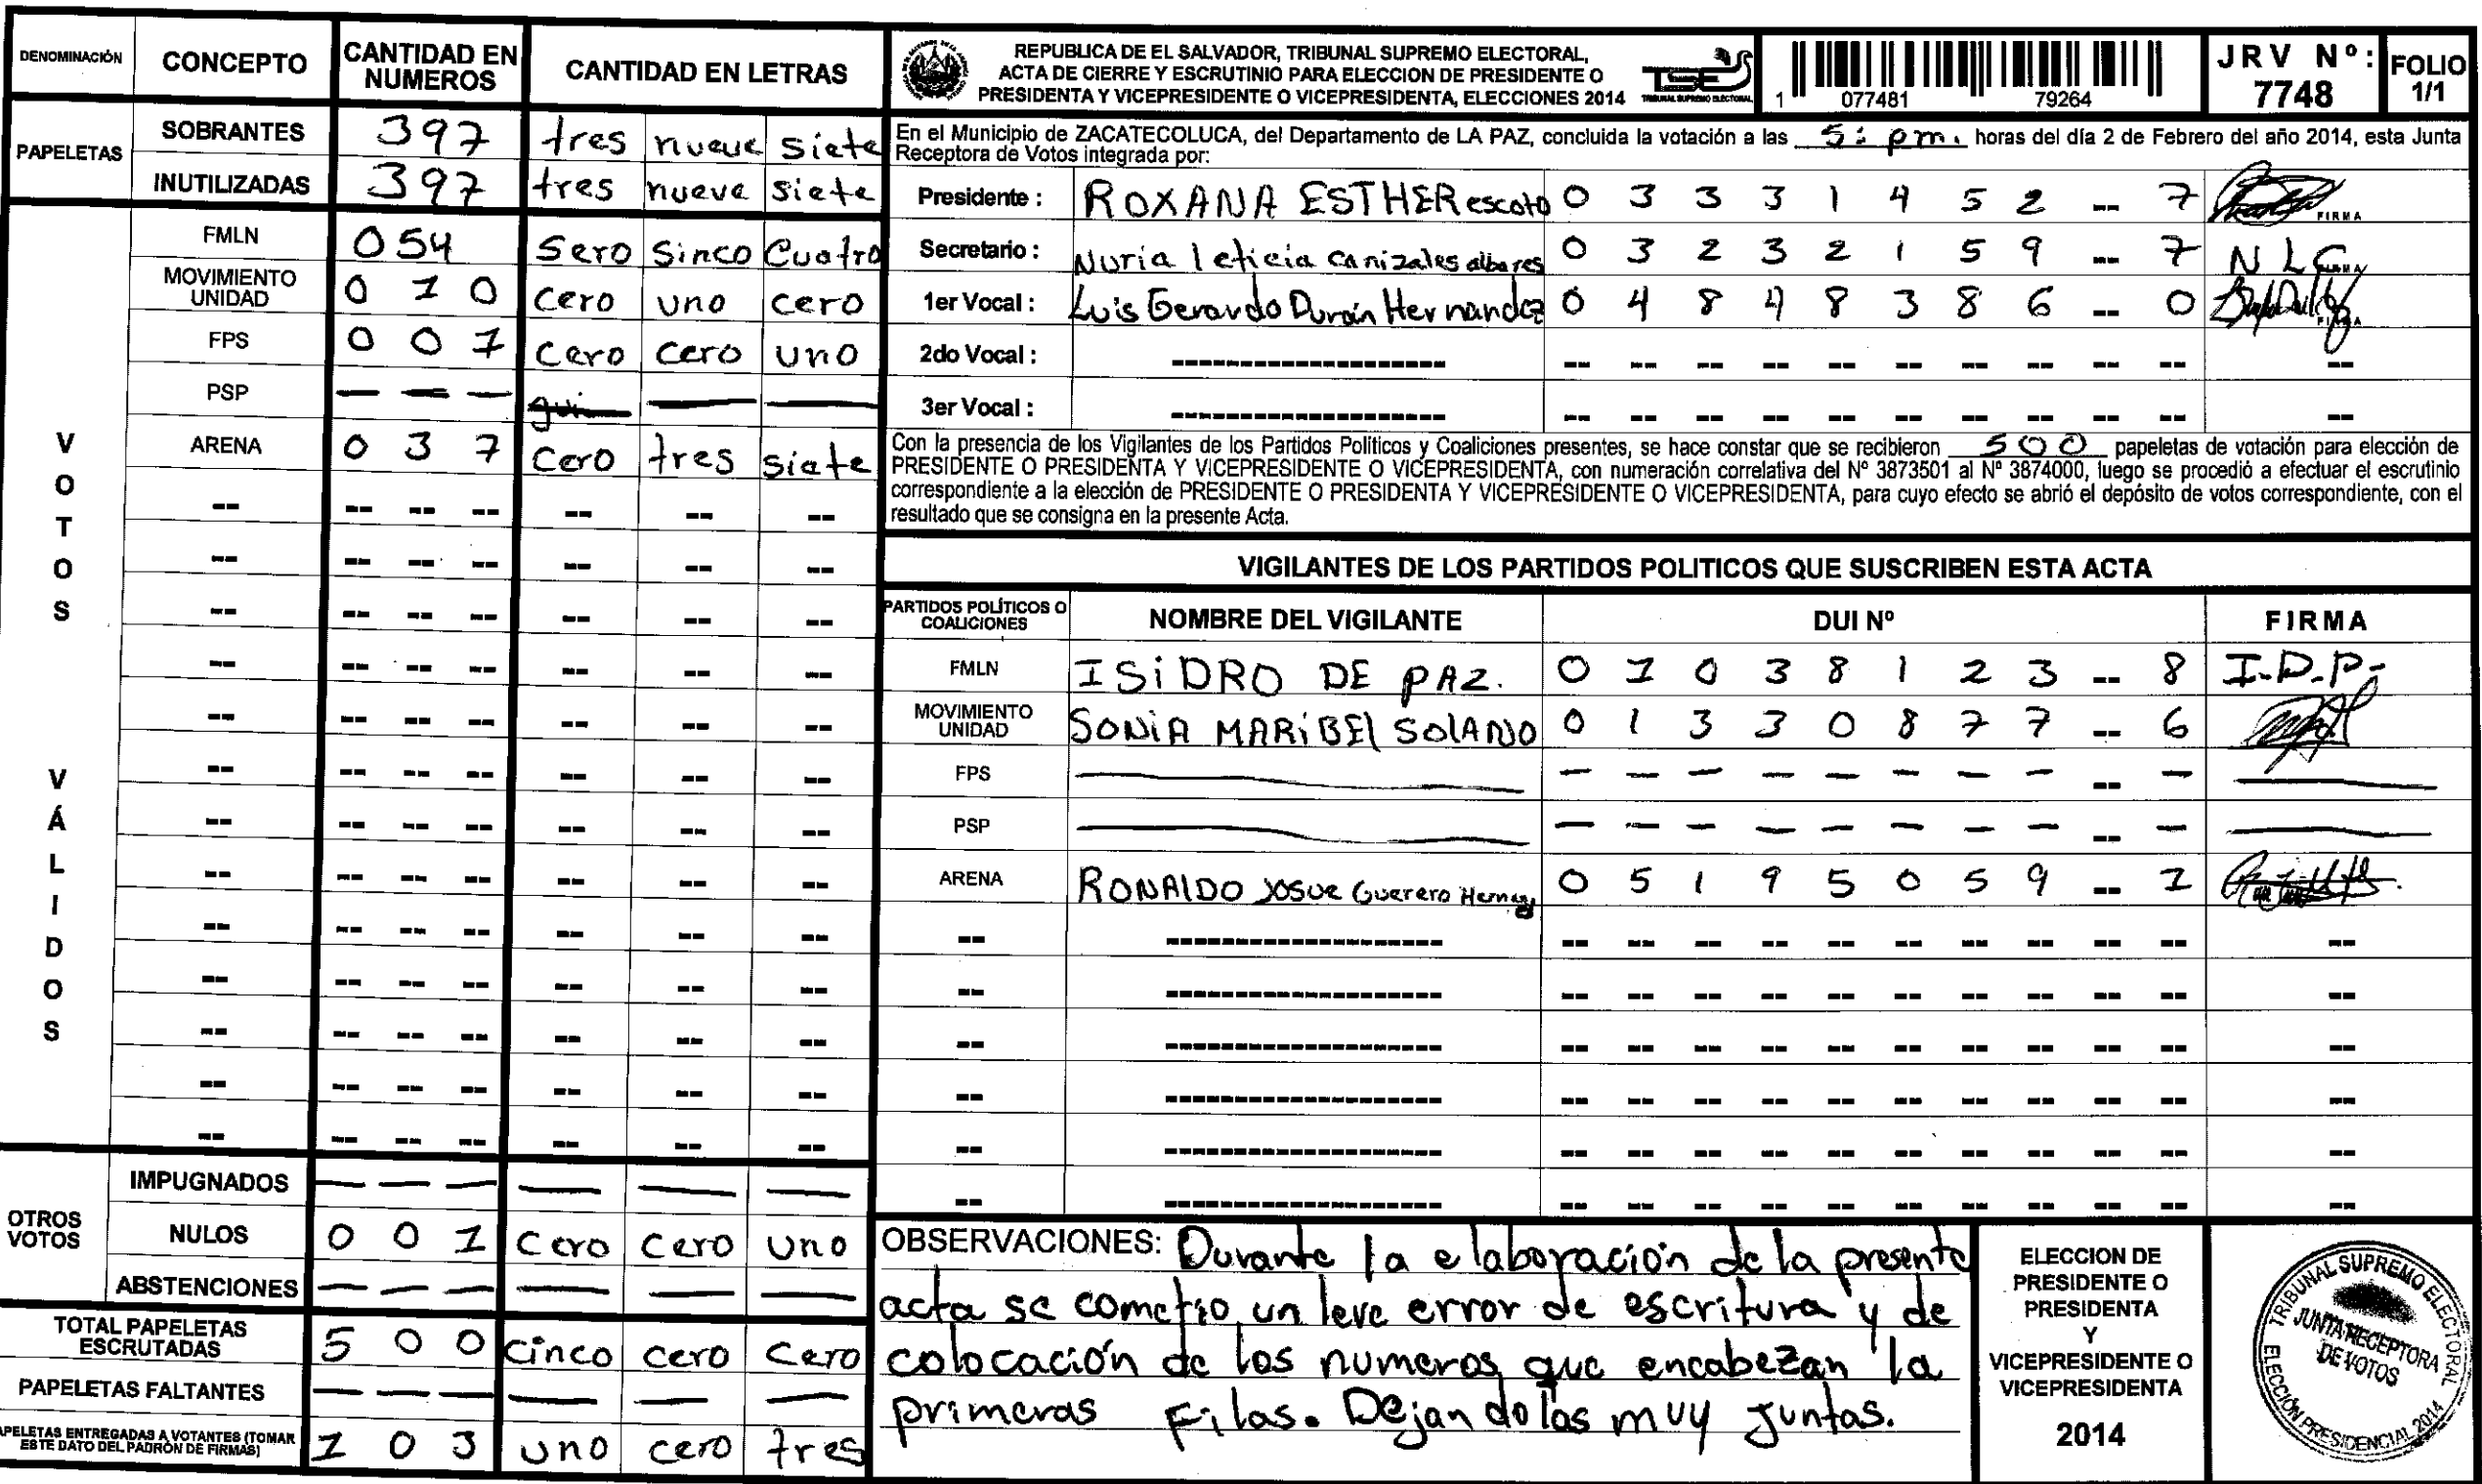 DENOMINACIÓN CONCEPTO CANTIDAD EN NUMEROS CANTIDAD EN LETRAS
PAPELETAS
SOBRANTES 397 tres nueve siete
INUTILIZADAS 397 tres nueve siete
VOTOS VÁLIDOS
FMLN 054 Sero Sinco Cuatro
MOVIMIENTO UNIDAD 0 1 0 cero uno cero
FPS 0 0 1 cero cero uno
PSP — — — — —
ARENA 0 3 7 cero tres siete
OTROS VOTOS
IMPUGNADOS — — — — — —
NULOS 0 0 1 cero cero uno
ABSTENCIONES — — — — — —
TOTAL PAPELETAS ESCRUTADAS 5 0 0 cinco cero cero
PAPELETAS FALTANTES — — — — — —
PELETAS ENTREGADAS A VOTANTES (TOMAR ESTE DATO DEL PADRÓN DE FIRMAS) 1 0 3 uno cero tres
REPUBLICA DE EL SALVADOR, TRIBUNAL SUPREMO ELECTORAL,
ACTA DE CIERRE Y ESCRUTINIO PARA ELECCION DE PRESIDENTE O
PRESIDENTA Y VICEPRESIDENTE O VICEPRESIDENTA, ELECCIONES 2014
TSE
TRIBUNAL SUPREMO ELECTORAL
1 077481 79264
JRV Nº: 7748
FOLIO 1/1
En el Municipio de ZACATECOLUCA, del Departamento de LA PAZ, concluida la votación a las 5: pm. horas del día 2 de Febrero del año 2014, esta Junta
Receptora de Votos integrada por:
Presidente : ROXANA ESTHER escoto 0 3 3 3 1 4 5 2 -- 7 FIRMA
Secretario : Nuria leticia canizales albares 0 3 2 3 2 1 5 9 -- 7 N L C
1er Vocal : Luis Gerardo Durán Hernandez 0 4 8 4 8 3 8 6 -- 0
2do Vocal :
3er Vocal :
Con la presencia de los Vigilantes de los Partidos Políticos y Coaliciones presentes, se hace constar que se recibieron 500 papeletas de votación para elección de
PRESIDENTE O PRESIDENTA Y VICEPRESIDENTE O VICEPRESIDENTA, con numeración correlativa del Nº 3873501 al Nº 3874000, luego se procedió a efectuar el escrutinio
correspondiente a la elección de PRESIDENTE O PRESIDENTA Y VICEPRESIDENTE O VICEPRESIDENTA, para cuyo efecto se abrió el depósito de votos correspondiente, con el
resultado que se consigna en la presente Acta.
VIGILANTES DE LOS PARTIDOS POLITICOS QUE SUSCRIBEN ESTA ACTA
PARTIDOS POLÍTICOS O COALICIONES NOMBRE DEL VIGILANTE DUI Nº FIRMA
FMLN ISIDRO DE PAZ. 0 1 0 3 8 1 2 3 -- 8 I.D.P.
MOVIMIENTO UNIDAD SONIA MARIBEL SOLANO 0 1 3 3 0 8 7 7 -- 6
FPS
PSP
ARENA RONALDO JOSUE Guerero 0 5 1 9 5 0 5 9 -- 1
OBSERVACIONES: Durante la elaboración de la presente
acta se cometio un leve error de escritura y de
colocación de los numeros que encabezan la
primeras Filas. Dejandolos muy Juntas.
ELECCION DE
PRESIDENTE O
PRESIDENTA
Y
VICEPRESIDENTE O
VICEPRESIDENTA
2014
TRIBUNAL SUPREMO ELECTORAL
JUNTA RECEPTORA
DE VOTOS
ELECCIÓN PRESIDENCIAL 2014